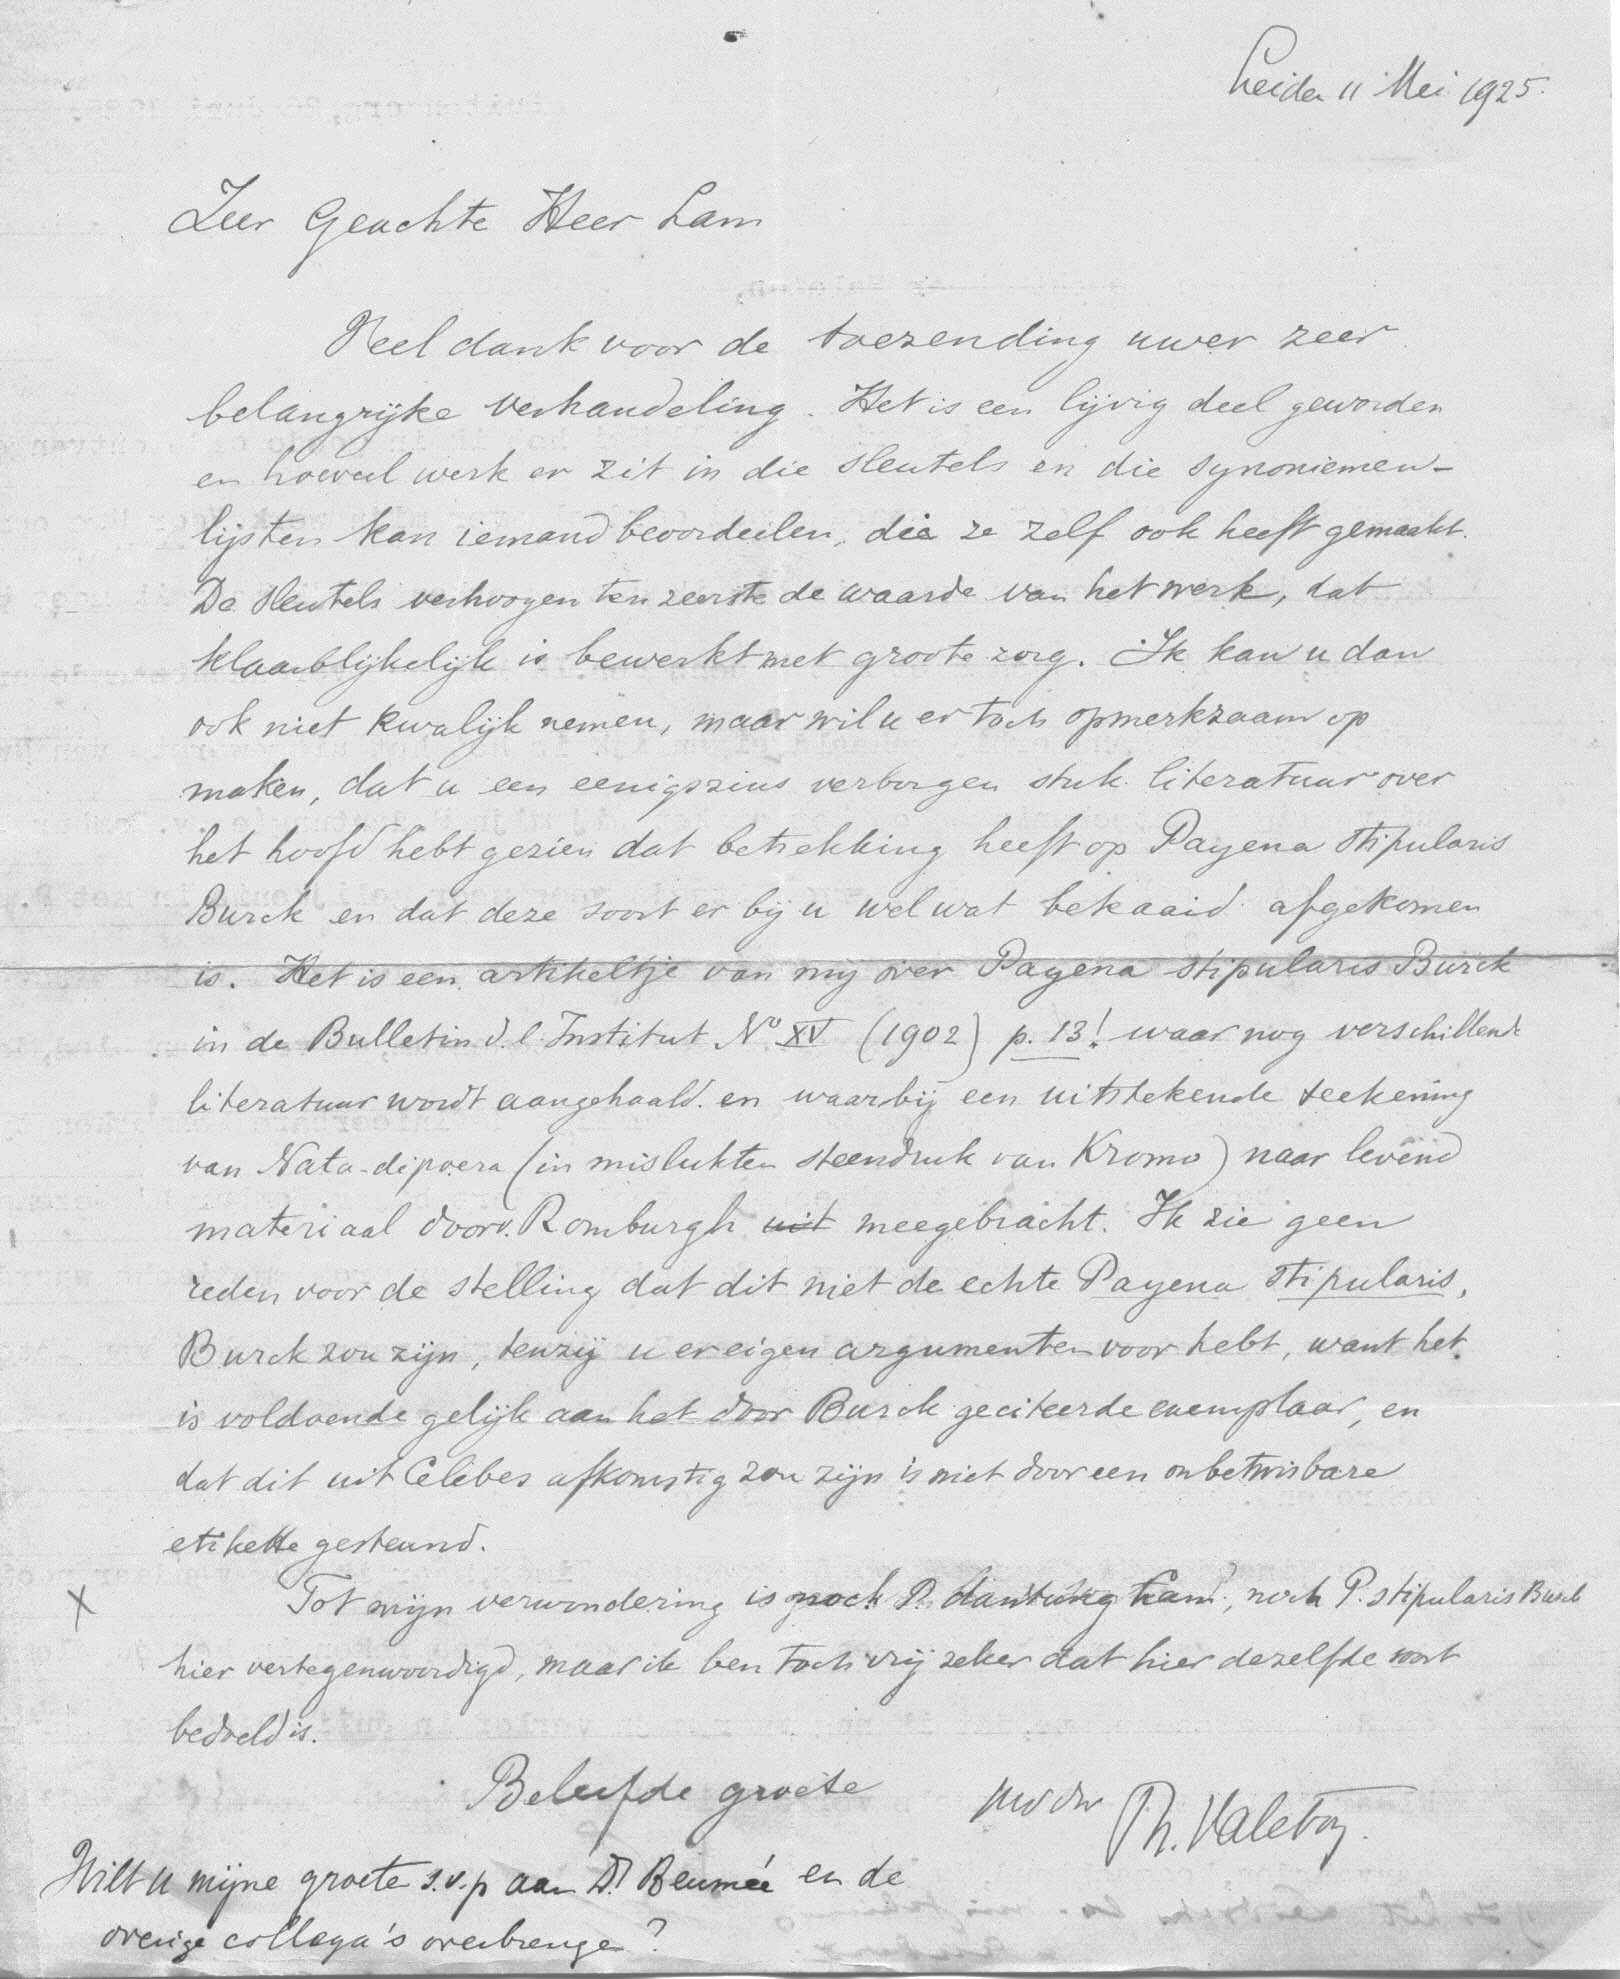 Leiden 11 Mei 1925.
Zeer Geachte Heer Lam
Veel dank voor de toezending uwer zeer
belangrijke verhandeling. Het is een lijvig deel geworden
en hoeveel werk er zit in die sleutels en die synoniemen-
lijsten kan iemand beoordeelen, die ze zelf ook heeft gemaakt.
De sleutels verhoogen ten zeerste de waarde van het werk, dat
klaarblijkelijk is bewerkt met groote zorg. Ik kan u dan
ook niet kwalijk nemen, maar wil u er toch opmerkzaam op
maken, dat u een eenigszins verborgen stuk literatuur over
het hoofd hebt gezien dat betrekking heeft op Payena stipularis
Burck en dat deze soort er bij u wel wat bekaaid afgekomen
is. Het is een artikeltje van mij over Payena stipularis Burck
in de Bulletin d. l. Institut No XV (1902) p. 13! waar nog verschillende
literatuur wordt aangehaald. en waarbij een uitstekende teekening
van Nata-dipoera (in mislukten steendruk van Kromo) naar levend
materiaal door v. Romburgh uit meegebracht. Ik zie geen
reden voor de stelling dat dit niet de echte Payena stipularis,
Burck zou zijn, tenzij u er eigen argumenten voor hebt, want het
is voldoende gelijk aan het door Burck geciteerde exemplaar, en
dat dit uit Celebes afkomstig zou zijn is niet door een onbetwisbare
etikette gesteund.
X Tot mijn verwondering is noch P. Lam, noch P. stipularis Burck
hier vertegenwoordigd, maar ik ben toch vrij zeker dat hier dezelfde soort
bedoeld is.
Beleefde groete
uw dw Th. Valeton.
Wilt u mijne groete s.v.p aan Dr Beumée en de
overige collega's overbrenge?